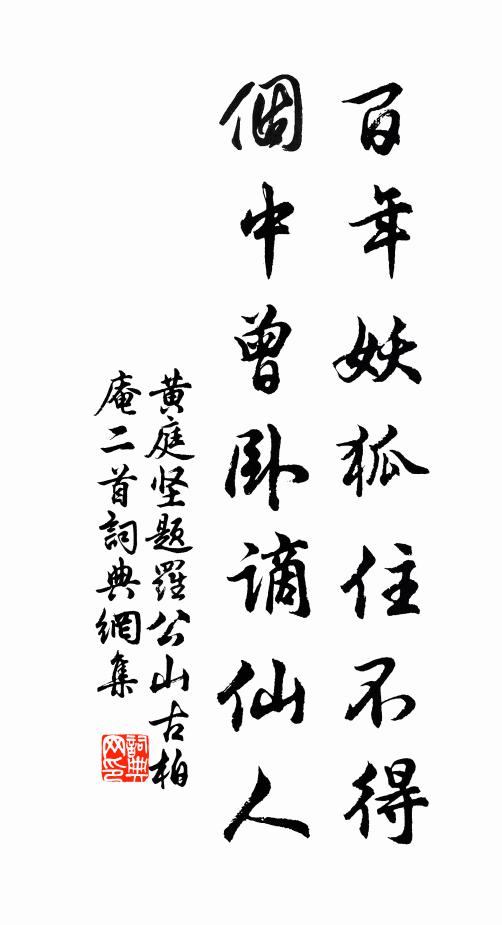 百年妖狐住不得
個中曾卧謫仙人
黄庭坚题羅公山古柏
庵二首詞典網集
詞典網印